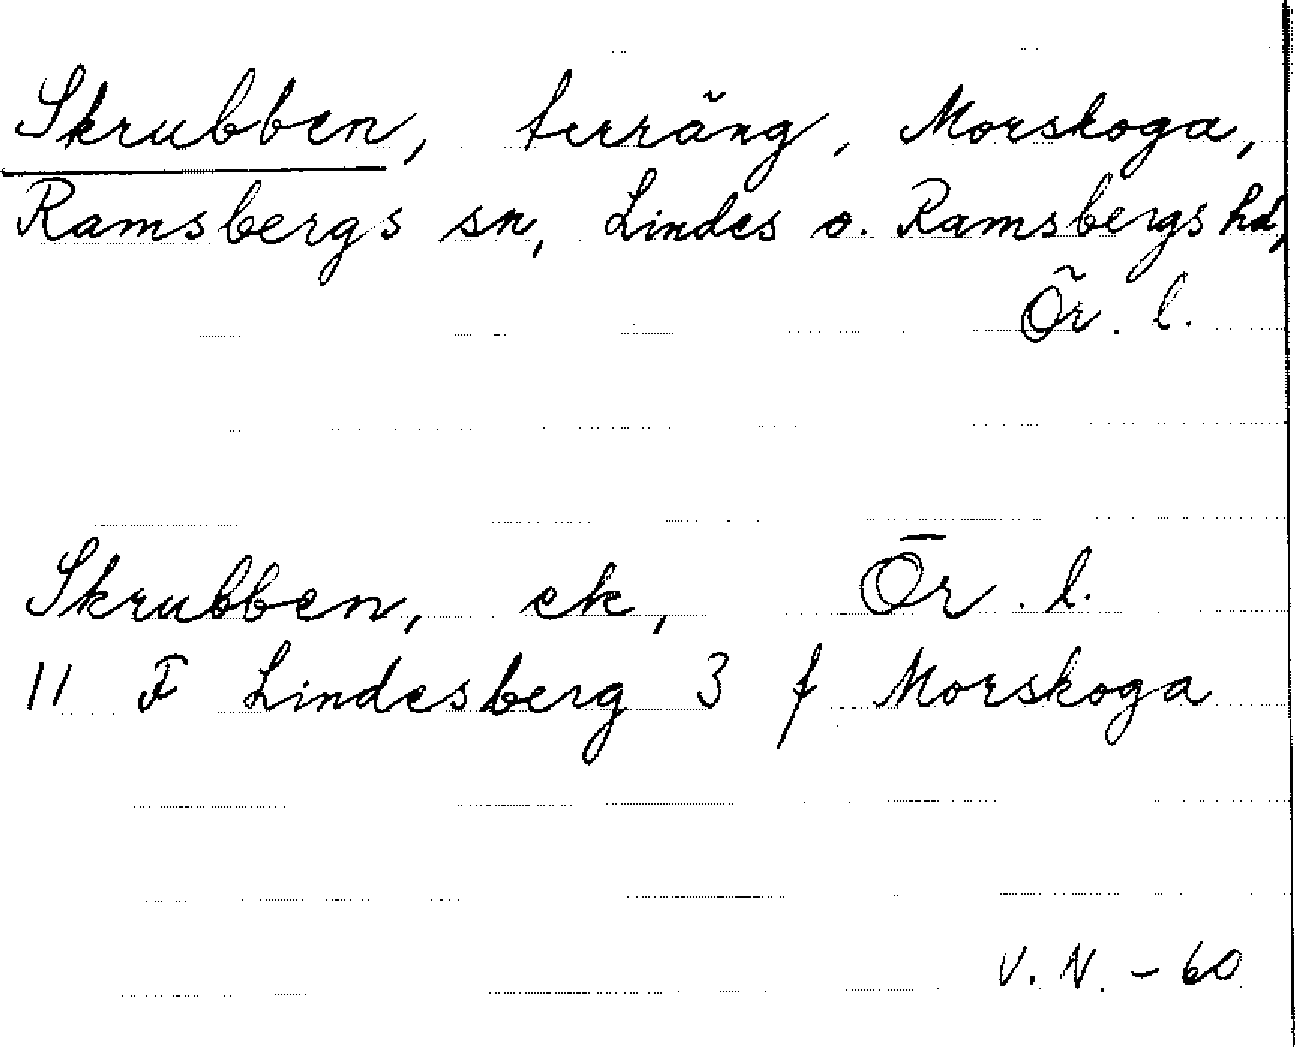 Skrubben, terräng, Morskoga,
Ramsbergs sn, Lindes o. Ramsbergs hd,
Ör. l.
Skrubben, ek, Ör. l.
11 F Lindesberg 3 f Morskoga
V. N. - 60